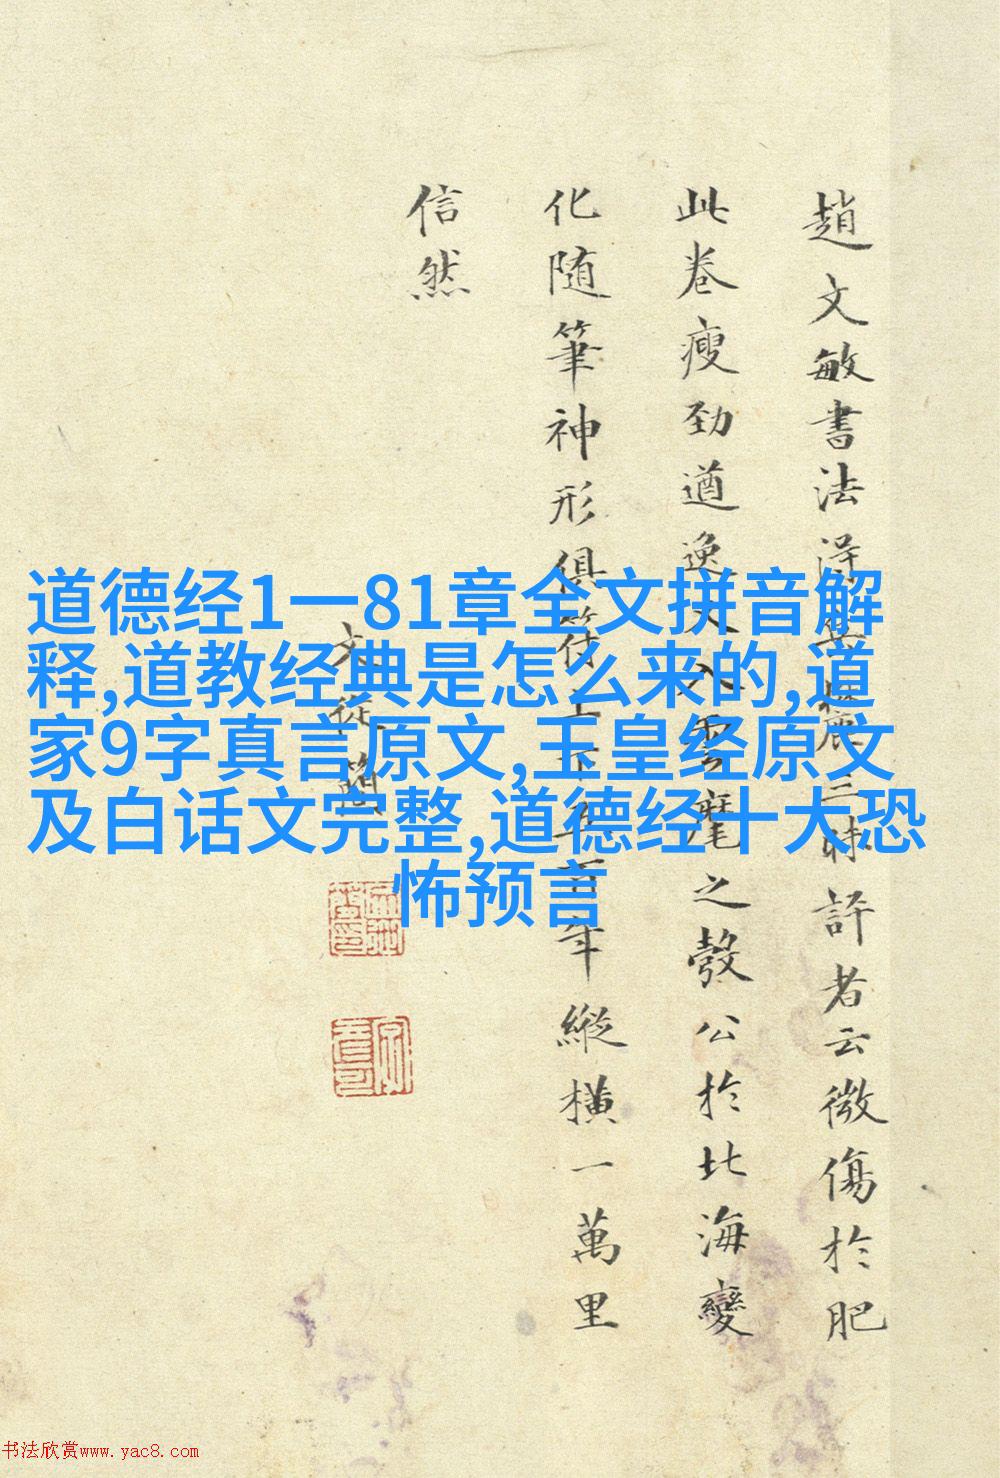 趙文敏書法三昧評者云微傷於肥
此卷瘦勁遒逸大入雲麾之彀公於北海變
化随筆神形俱符上下五百年縱橫一萬里
信然
文從簡
道德经1一81章全文拼音解
释,道教经典是怎么来的,道
家9字真言原文,玉皇经原文
及白话文完整,道德经十大恐
怖预言
书法欣赏www.yac8.com